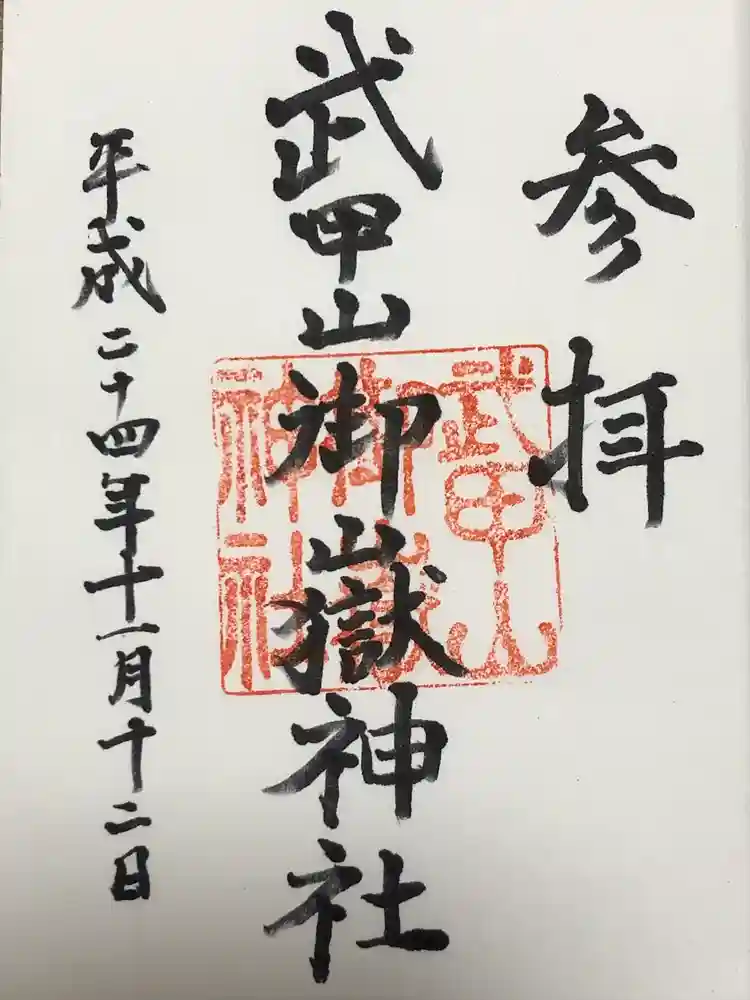 参拝
武甲山御山嶽神社
平成二十四年十一月十二日
武甲山
御嶽
神社